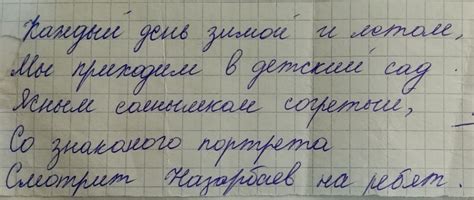 Каждый день зимой и летом,
Мы приходим в детский сад.
Ясным солнышком согретый,
Со знакомого портрета
Смотрит Назарбаев на ребят.